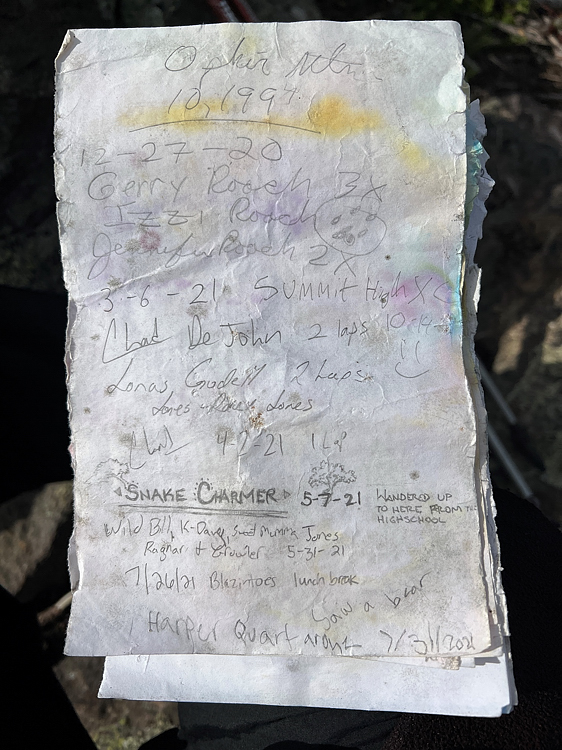 Ophir Mtn.
10,199'
12-27-20
Gerry Roach 3X
Izzi Roach
Jennifer Roach 2X
3-6-21 SUMMIT High XC
Chad DeJohn 2 laps 10-14-
2 Laps :)
Jones Jones
Chad 4-2-21 1 Lap
SNAKE CHARMER 5-7-21 WANDERED UP
TO HERE FROM THE
HIGHSCHOOL
Wild Bill, K-Dawg, Sweet Momma Jones
Ragnar + Growler 5-31-21
7/26/21 Blazintoes lunch break
Saw a bear
Harper Quart 7/31/2021